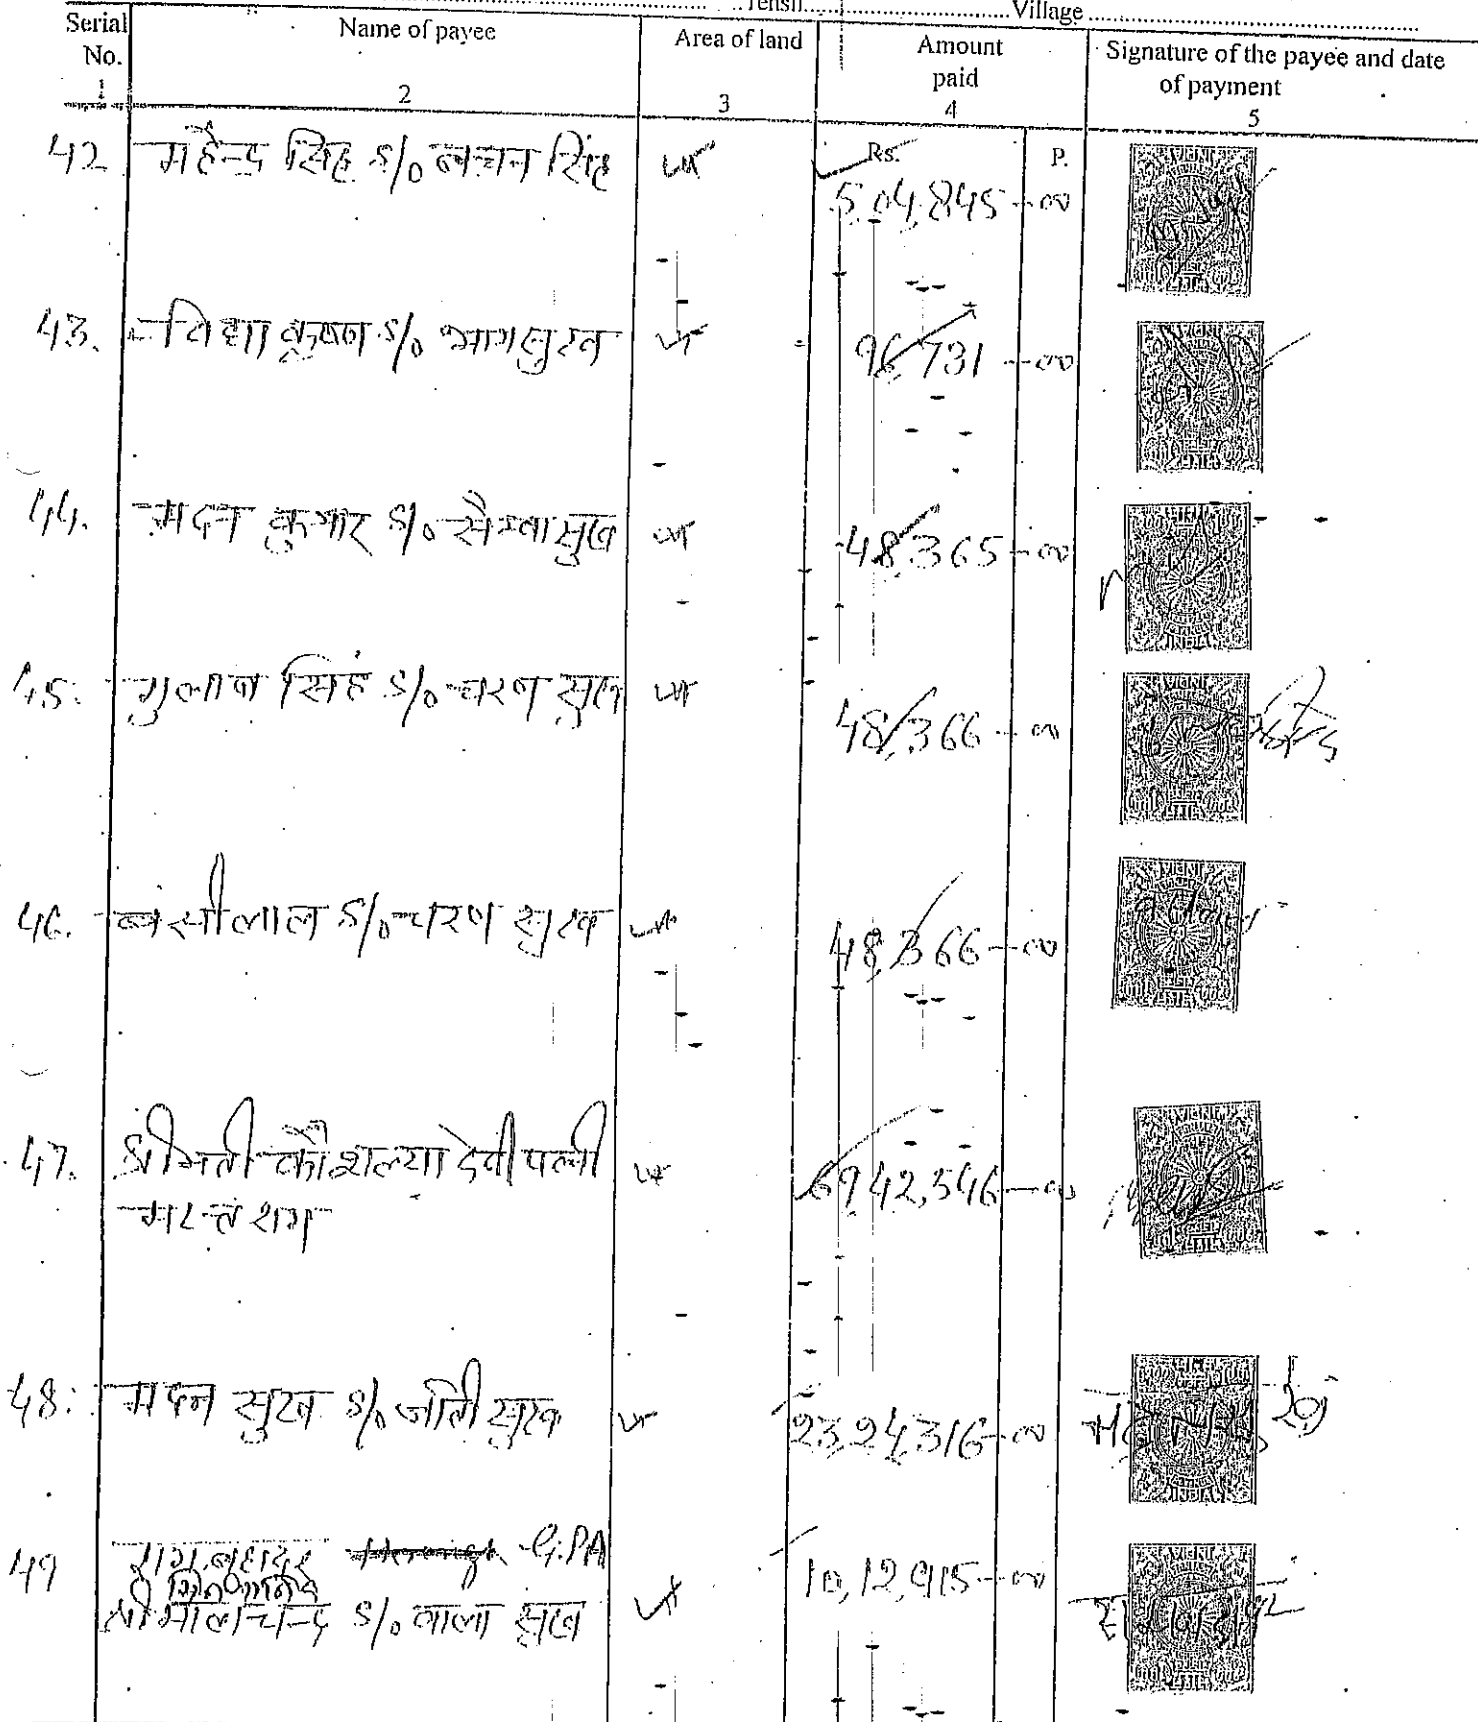 Tehsil.......................................Village.................................................
Serial No. Name of payee Area of land Amount paid Signature of the payee and date of payment
1 2 3 4 5
Rs. P.
42 महेन्द्र सिंह S/o बचन सिंह 5,04,845-00
43. विद्या कृष्ण S/o भागसुख 96,731-00
44. मदन कुमार S/o सुख 48,365-00
45. गुलाब सिंह S/o चरण सुख 48,366-00
46. बंसीलाल S/o चरण सुख 48,366-00
47. श्रीमती कौशल्या देवी पत्नी 69,42,546-00
राम
48. मदन सुख S/o जोती सुख 23,24,316-00 मदन सुख
49 राम बहादुर G.PA 10,12,915-00
श्री मालचन्द S/o बाला सुख राम बहादुर